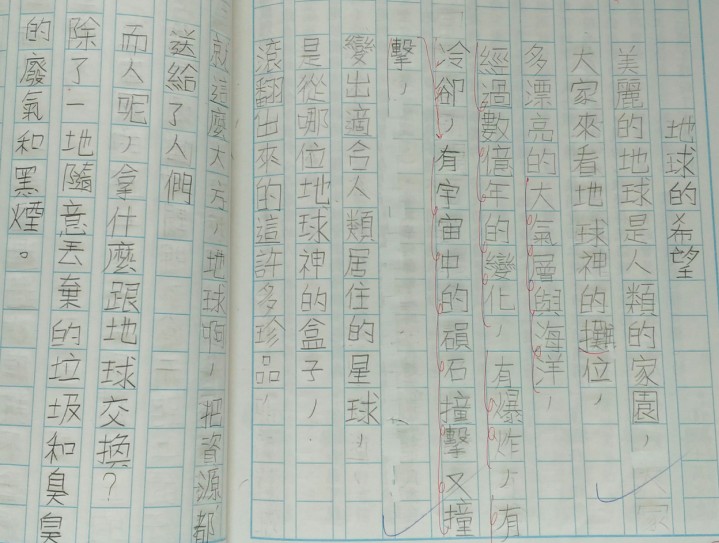 地球的希望
美麗的地球是人類的家園，
大家來看地球神的攤位，
多漂亮的大氣層與海洋，
經過數億年的變化，有爆炸，有
冷卻，有宇宙中的碩石撞擊又撞
擊，
變出適合人類居住的星球，
是從哪位地球神的盒子，
滾翻出來的這許多珍品，
就這麼大方，地球啊，把資源都
送給了人們
而人呢，拿什麼跟地球交換？
除了一地隨意丟棄的垃圾和臭臭
的廢氣和黑煙。